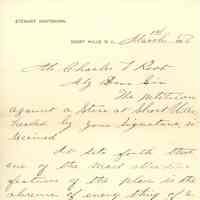 STEWART HARTSHORN.
SHORT HILLS, N. J., March 1st
Mr Charles T Root
My Dear Sir
The petition
against a Store at Short Hills
headed by your signature, is
received
It sets forth that
one of the most attractive
features of the place is the
absence of every thing of a